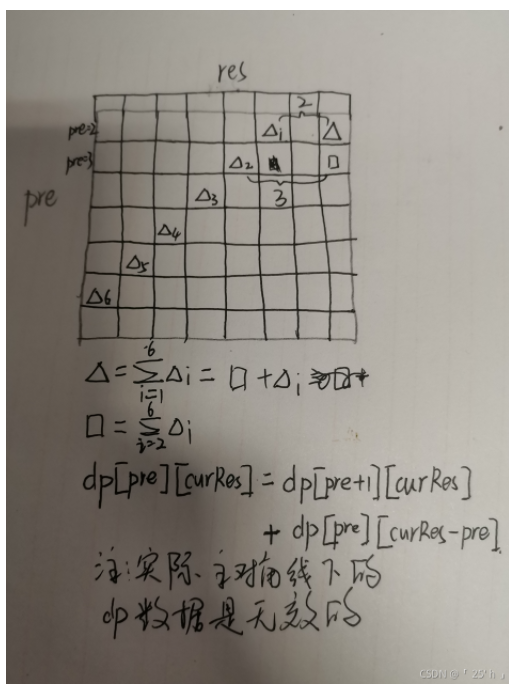 res
2
pre=2 Δ₁ Δ
pre=3 Δ₂ □
pre Δ₃ 3
Δ₄
Δ₅
Δ₆
Δ = ∑_{i=1}^{6} Δi = □ + Δ₁
□ = ∑_{i=2}^{6} Δi
dp[pre][curRes] = dp[pre+1][curRes]
+ dp[pre][curRes-pre]
注:实际、主对角线下的
dp数据是无效的
CSDN @「25'h」